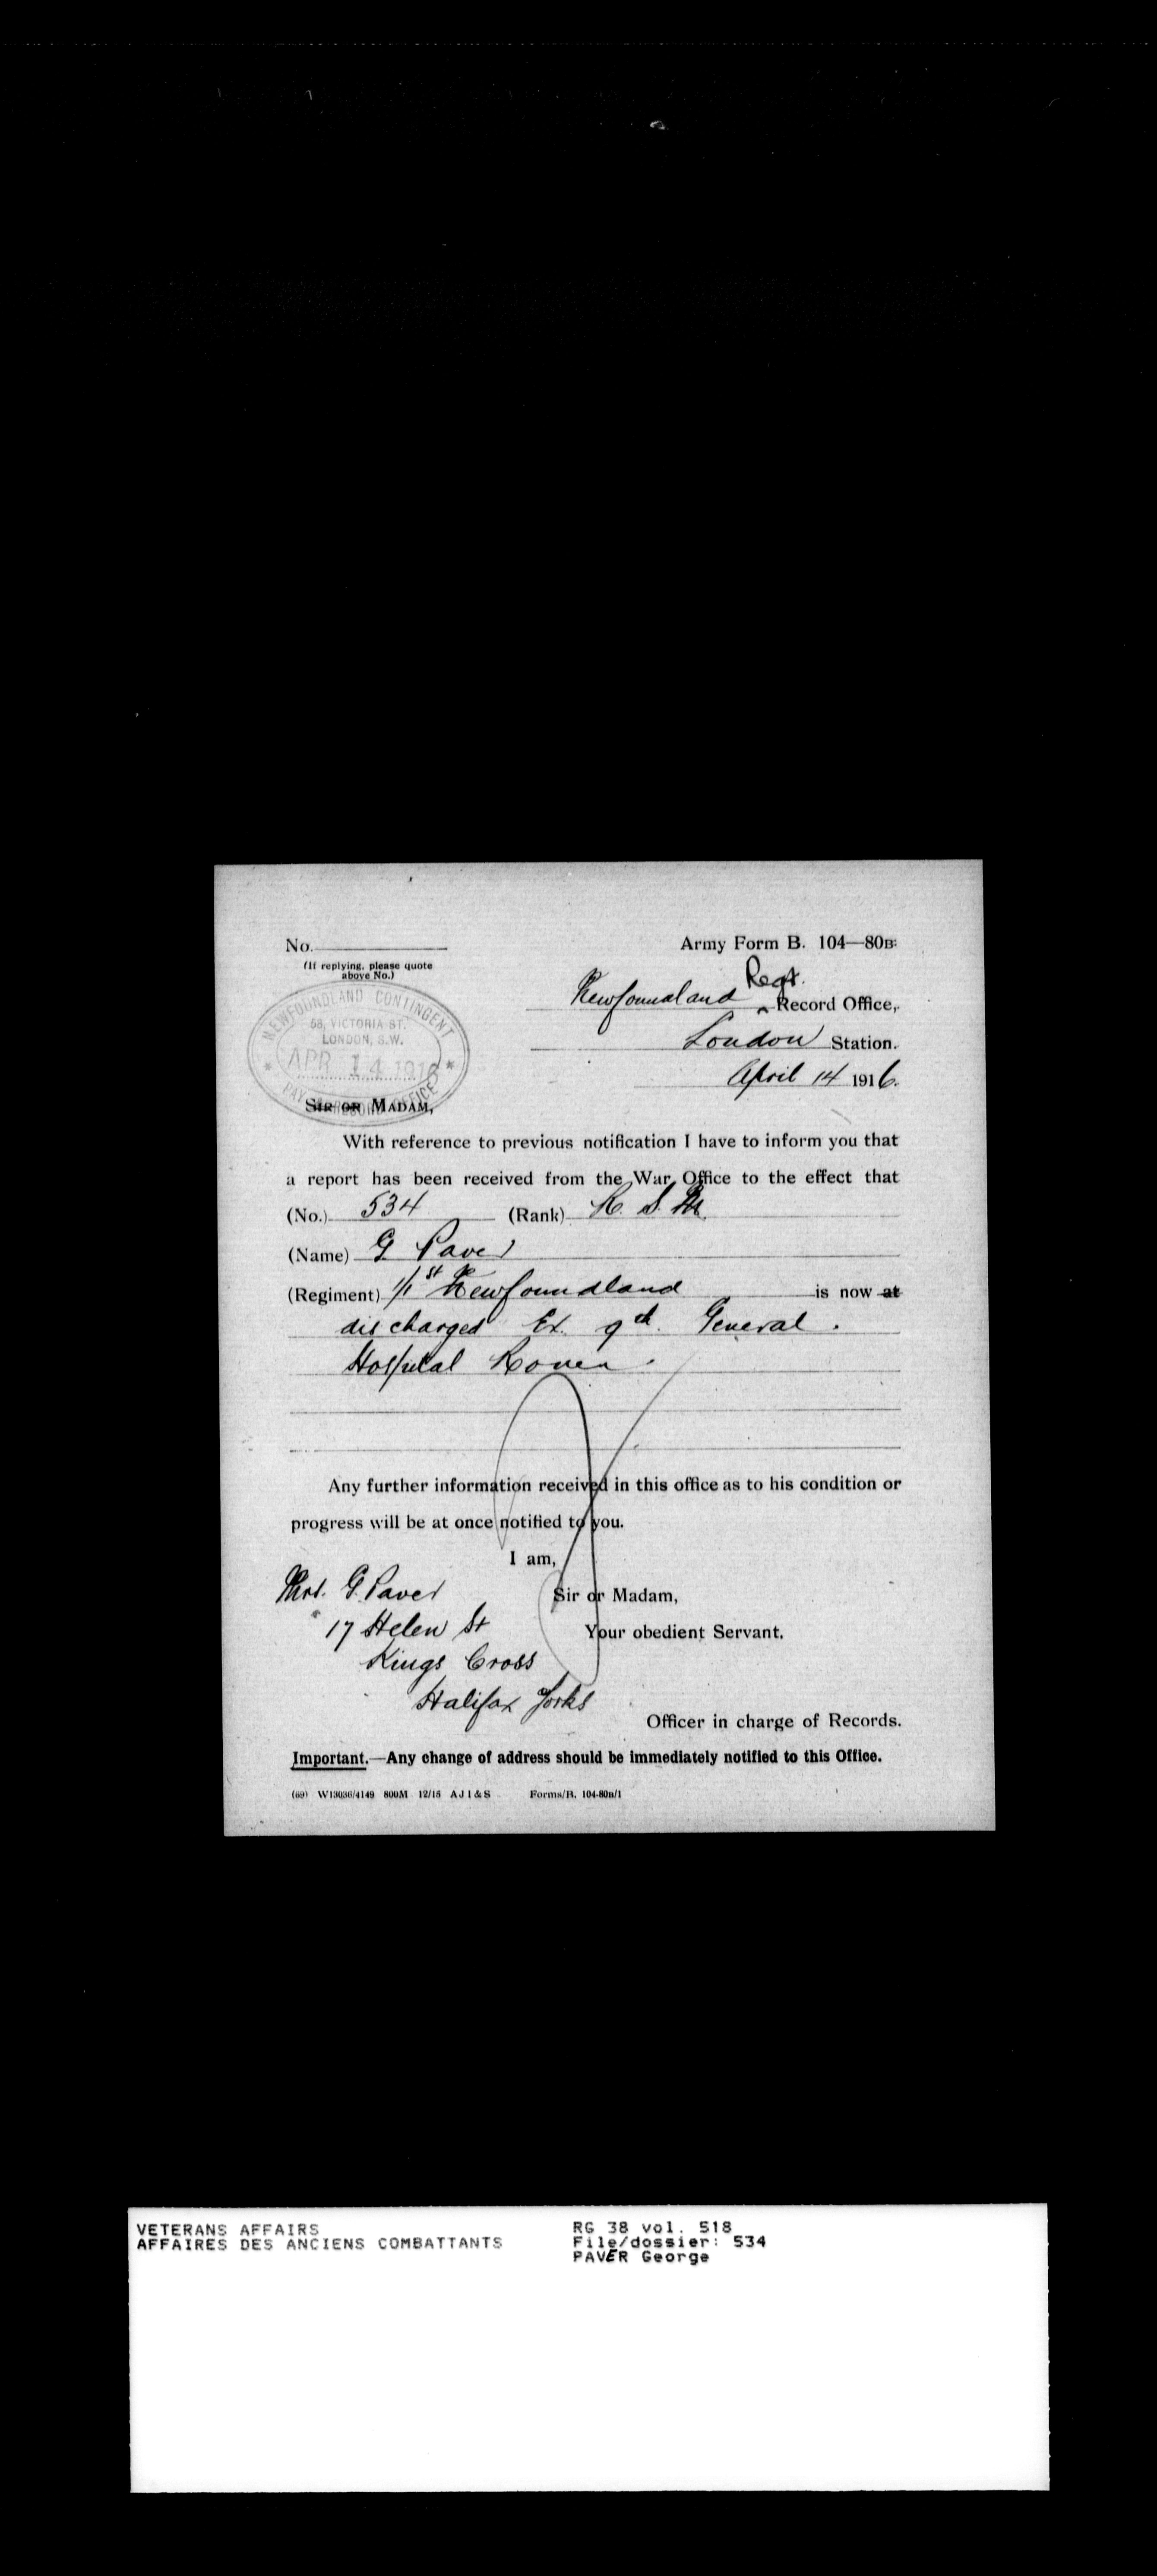 No.
(If replying, please quote
above No.)
Army Form B. 104—80B.
Regt.
Newfoundland ‸ Record Office,
London Station.
April 14 1916.
NEWFOUNDLAND CONTINGENT
58, VICTORIA ST.
LONDON, S.W.
APR 14 1916
PAY & RECORD OFFICE
SIR OR MADAM,
With reference to previous notification I have to inform you that
a report has been received from the War Office to the effect that
(No.) 534 (Rank) R. S. M.
(Name) G Paver
(Regiment) 1/1st Newfoundland is now at
discharged Ex. 9th General.
Hospital Rouen.
Any further information received in this office as to his condition or
progress will be at once notified to you.
I am,
Sir or Madam,
Your obedient Servant,
Mrs. G. Paver
17 Helen St
Kings Cross
Halifax Yorks
Officer in charge of Records.
Important.—Any change of address should be immediately notified to this Office.
(69) W13036/4149 800M 12/15 A J I & S Forms/B. 104-80B/1
VETERANS AFFAIRS
AFFAIRES DES ANCIENS COMBATTANTS
RG 38 vol. 518
File/dossier: 534
PAVER George